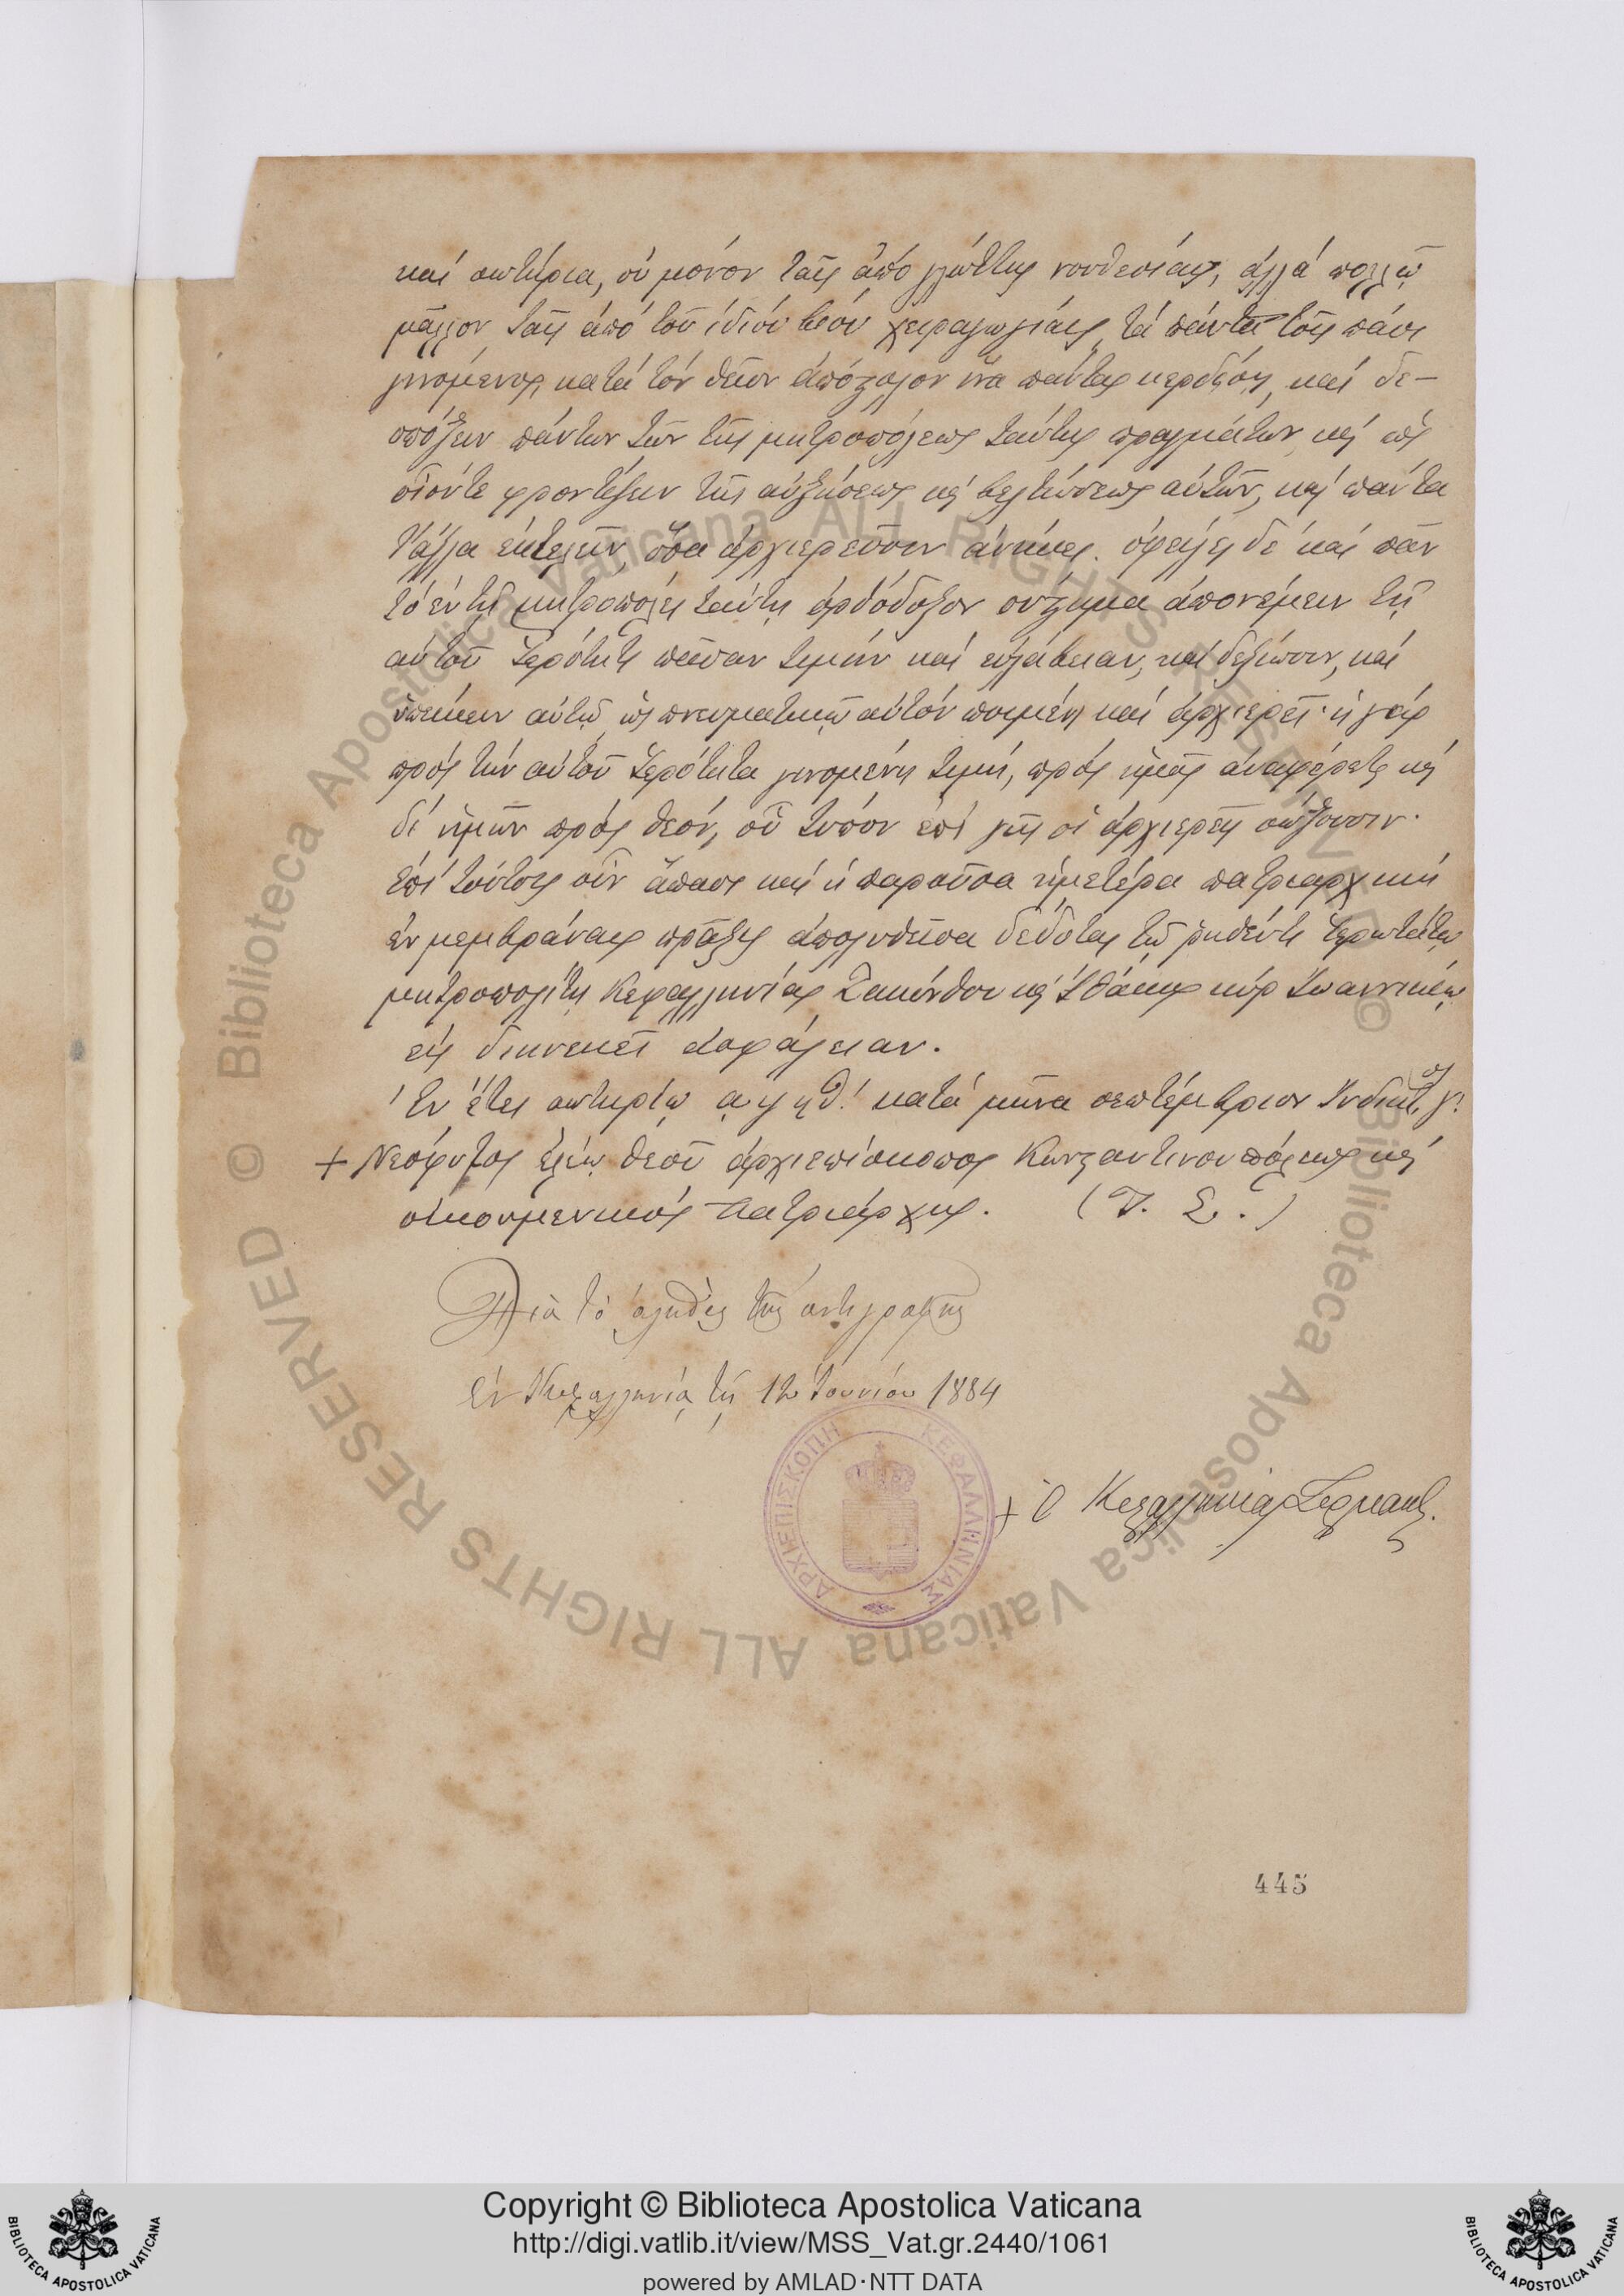 καί σωτήρια, οὐ μόνον ταῖς ἀπό γλώττης νουθεσίαις, ἀλλά πολλῷ
μᾶλλον ταῖς ἀπό τοῦ ἰδίου βίου χειραγωγίαις, τά πάντα τοῖς πάσι
γινόμενος, κατά τόν θεῖον ἀπόστολον ἵνα πάντας κερδήσῃ, καί δε-
σπόζειν πάντων τῶν τῆς μητροπόλεως ταύτης πραγμάτων, καί ὡς
οἷόντε φροντίζειν τῆς αὐξήσεως καί βελτιώσεως αὐτῶν, καί πάντα
τἄλλα ἐκτελεῖν, ὅσα ἀρχιερεῦσιν ἀνήκει. ὀφείλει δέ καί πᾶν
τό ἐν τῇ μητροπόλει ταύτῃ ὀρθόδοξον σύστημα ἀπονέμειν τῇ
αὐτοῦ ἱερότητι πᾶσαν τιμήν καί εὐλάβειαν, καί δεξίωσιν, καί
ὑπείκειν αὐτῷ ὡς πνευματικῷ αὐτόν ποιμένι καί ἀρχιερεῖ· ἡ γάρ
πρός τήν αὐτοῦ ἱερότητα γινομένη τιμή, πρός ἡμᾶς ἀναφέρεται καί
δι' ἡμῶν πρός θεόν, οὗ τύπον ἐπί γῆς οἱ ἀρχιερεῖς σώζουσιν.
Ἐπί τούτοις οὖν ἅπασι καί ἡ παροῦσα ἡμετέρα πατριαρχική
ἐν μεμβράναις πρᾶξις ἀπολυθεῖσα δέδοται τῷ ῥηθέντι ἱερωτάτῳ
μητροπολίτῃ Κεφαλληνίας Ζακύνθου καί Ἰθάκης κύρ Ἰωαννικίῳ
εἰς διηνεκεῖ ἀσφάλειαν.
Ἐν ἔτει σωτηρίῳ αψηθ! κατά μῆνα σεπτέμβριον Ἰνδικτ. γ!
+ Νεόφυτος ἐλέῳ θεοῦ ἀρχιεπίσκοπος Κωνσταντινουπόλεως καί
οἰκουμενικός πατριάρχης. (Τ. Σ.)
Διὰ τὸ ἀληθὲς τῆς ἀντιγραφῆς
Ἐν Κεφαλληνίᾳ τῇ 12 Ἰουνίου 1884
+ Ὁ Κεφαλληνίας Γερμανός.
ΑΡΧΙΕΠΙΣΚΟΠΗ ΚΕΦΑΛΛΗΝΙΑΣ
445
© Biblioteca Apostolica Vaticana ALL RIGHTS RESERVED © Biblioteca Apostolica Vaticana ALL RIGHTS RESERVED
Copyright © Biblioteca Apostolica Vaticana
http://digi.vatlib.it/view/MSS_Vat.gr.2440/1061
powered by AMLAD·NTT DATA
BIBLIOTECA APOSTOLICA VATICANA
BIBLIOTECA APOSTOLICA VATICANA